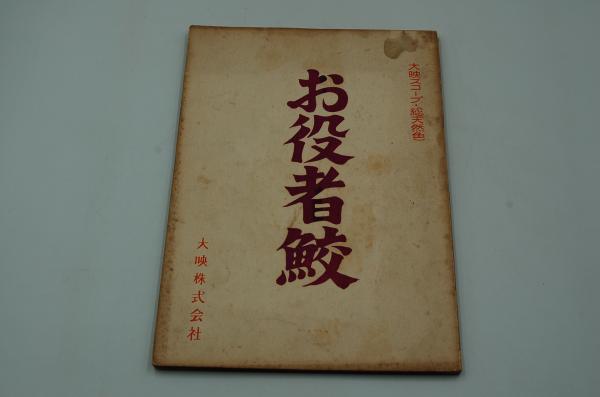 大映スコープ・総天然色
お役者鮫
大映株式会社